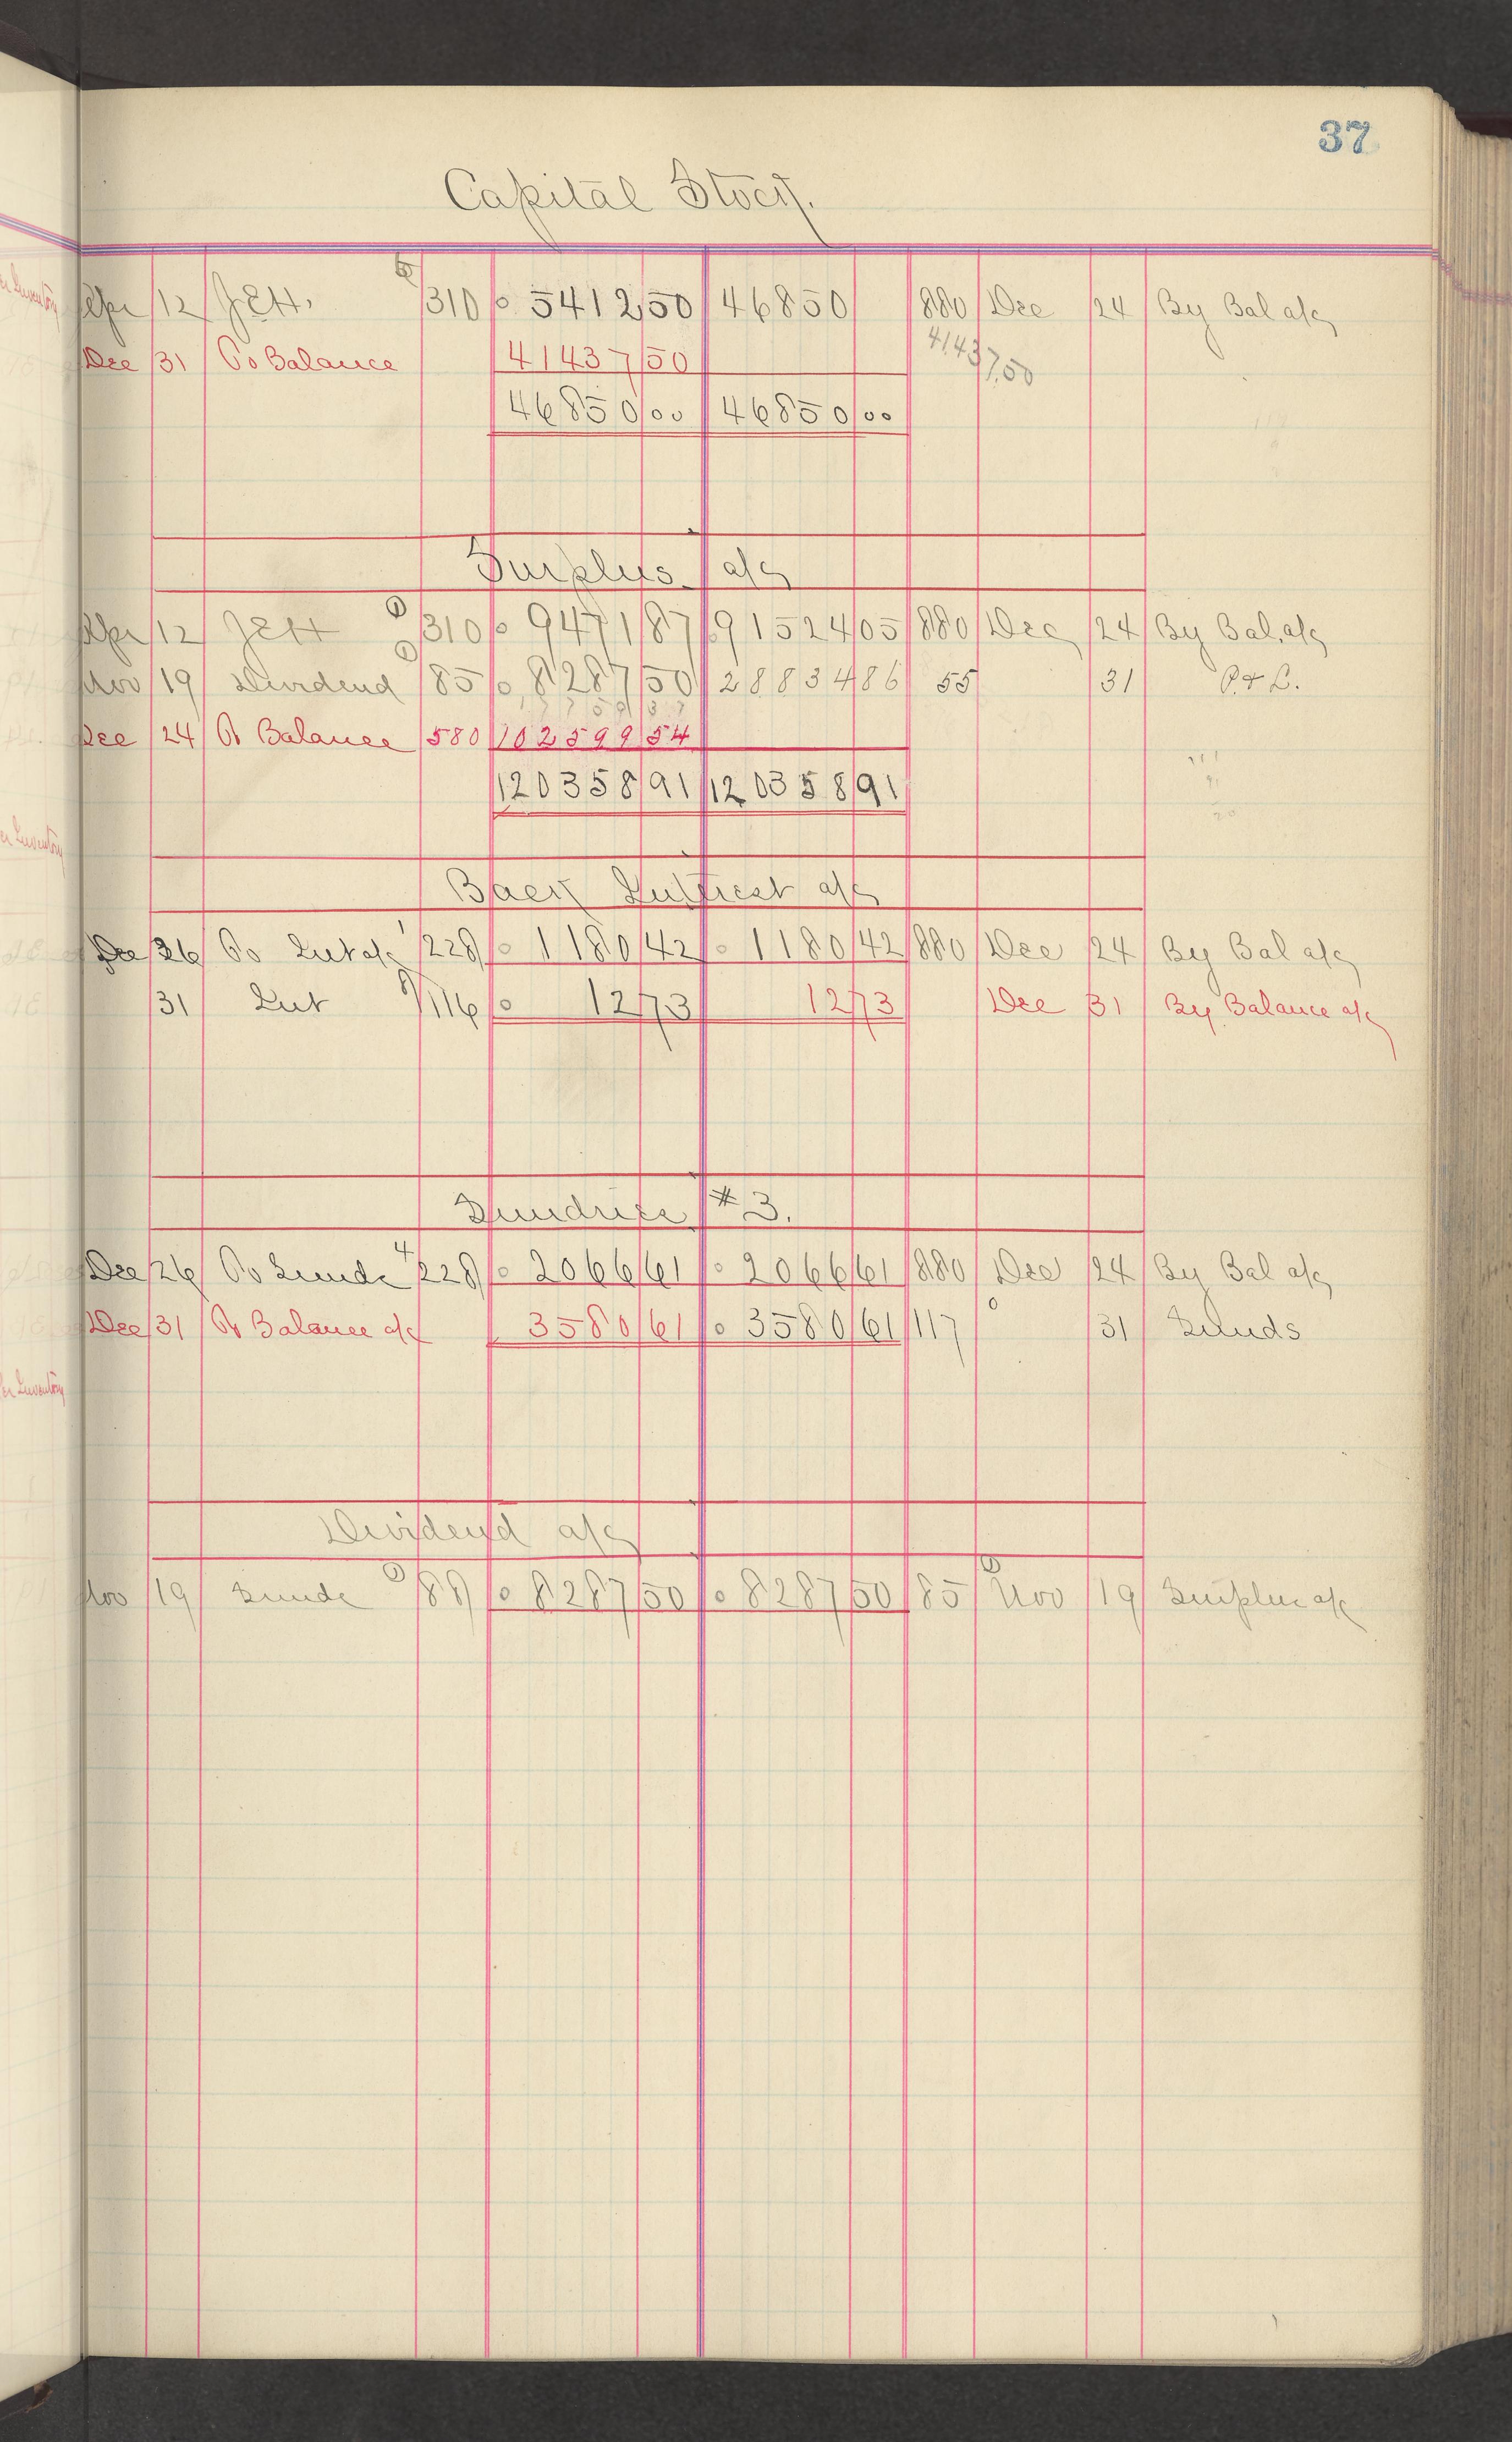 37
Capital Stock.
Apr 12 JEH. 6 310 5412 50 46850 880 Dec 24 By Bal a/c
Dec 31 To Balance 41437 50 41437.50
46850 00 46850 00
Surplus a/c
Apr 12 JEH 1 310 9471 87 91524 05 880 Dec 24 By Bal. a/c
Nov 19 Dividend 1 85 8287 50 28834 86 55 31 P. & L.
Dec 24 To Balance 580 102599 54
120358 91 120358 91
Back Interest a/c
Dec 26 To Int a/c 1 228 1180 42 1180 42 880 Dec 24 By Bal a/c
31 Int 116 12 73 12 73 Dec 31 By Balance a/c
Sundries #3.
Dec 26 To Sunds 4 228 2066 61 2066 61 880 Dec 24 By Bal a/c
Dec 31 To Balance a/c 3580 61 3580 61 117 31 Sunds
Dividend a/c
Nov 19 Sunds 1 88 8287 50 8287 50 85 1 Nov 19 Surplus a/c
er Inventory
er Inventory
er Inventory